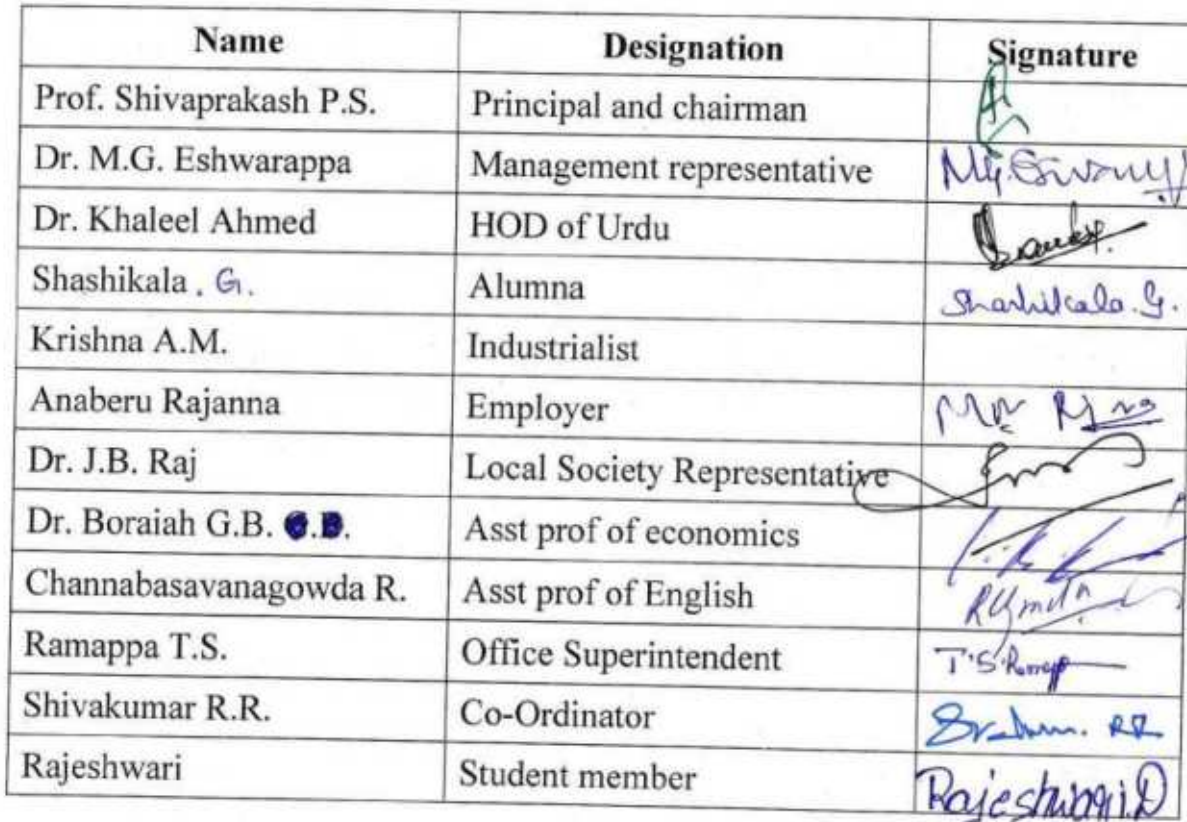 Name Designation Signature
Prof. Shivaprakash P.S. Principal and chairman
Dr. M.G. Eshwarappa Management representative
Dr. Khaleel Ahmed HOD of Urdu
Shashikala . G. Alumna Shashikala.G.
Krishna A.M. Industrialist
Anaberu Rajanna Employer
Dr. J.B. Raj Local Society Representative
Dr. Boraiah G.B. Asst prof of economics
Channabasavanagowda R. Asst prof of English
Ramappa T.S. Office Superintendent T.S.
Shivakumar R.R. Co-Ordinator RR
Rajeshwari Student member Rajeshwari.D